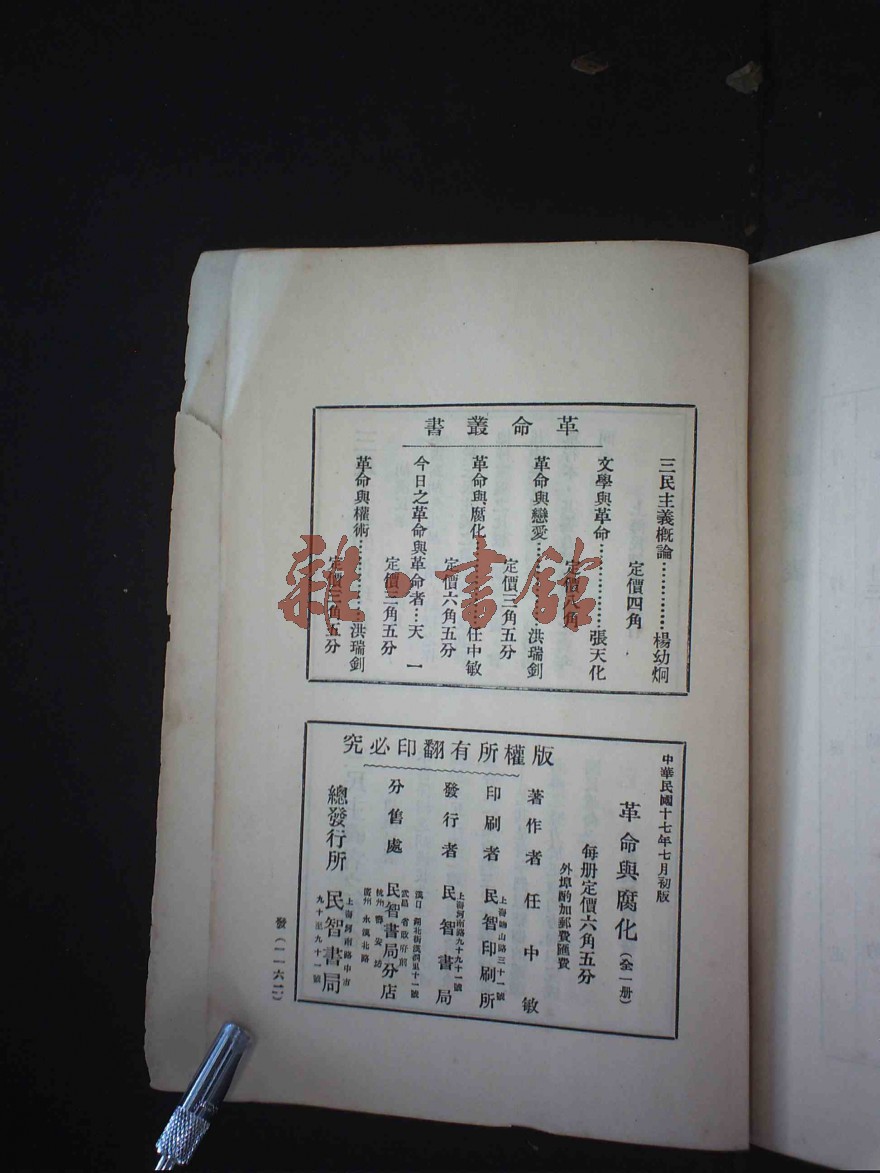 革命叢書
三民主義概論…………楊幼炯
定價四角
文學與革命…………張天化
定價八角
革命與戀愛…………洪瑞釗
定價三角五分
革命與腐化…………任中敏
定價六角五分
今日之革命與革命者…天一
定價二角五分
革命與權術…………洪瑞釗
定價三角五分
雜·書館
版權所有翻印必究
中華民國十七年七月初版
革命與腐化(全一册)
每册定價六角五分
外埠酌加郵費匯費
著作者 任中敏
印刷者 民智印刷所
發行者 民智書局
上海河南路九十九十一號
分售處 民智書局分店
武昌 省政府前
廣州 永漢北路
總發行所 民智書局
上海河南路中市
九十至九十一號
發(一一六二)